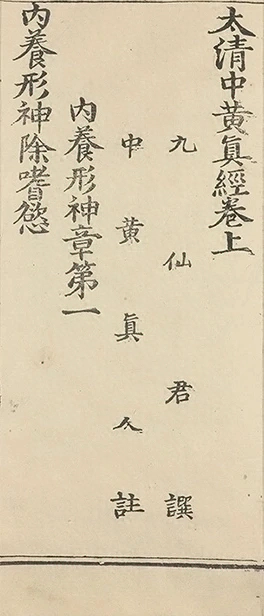 太清中黃眞經卷上
九仙君譔
中黃眞人註
內養形神章第一
內養形神除嗜慾